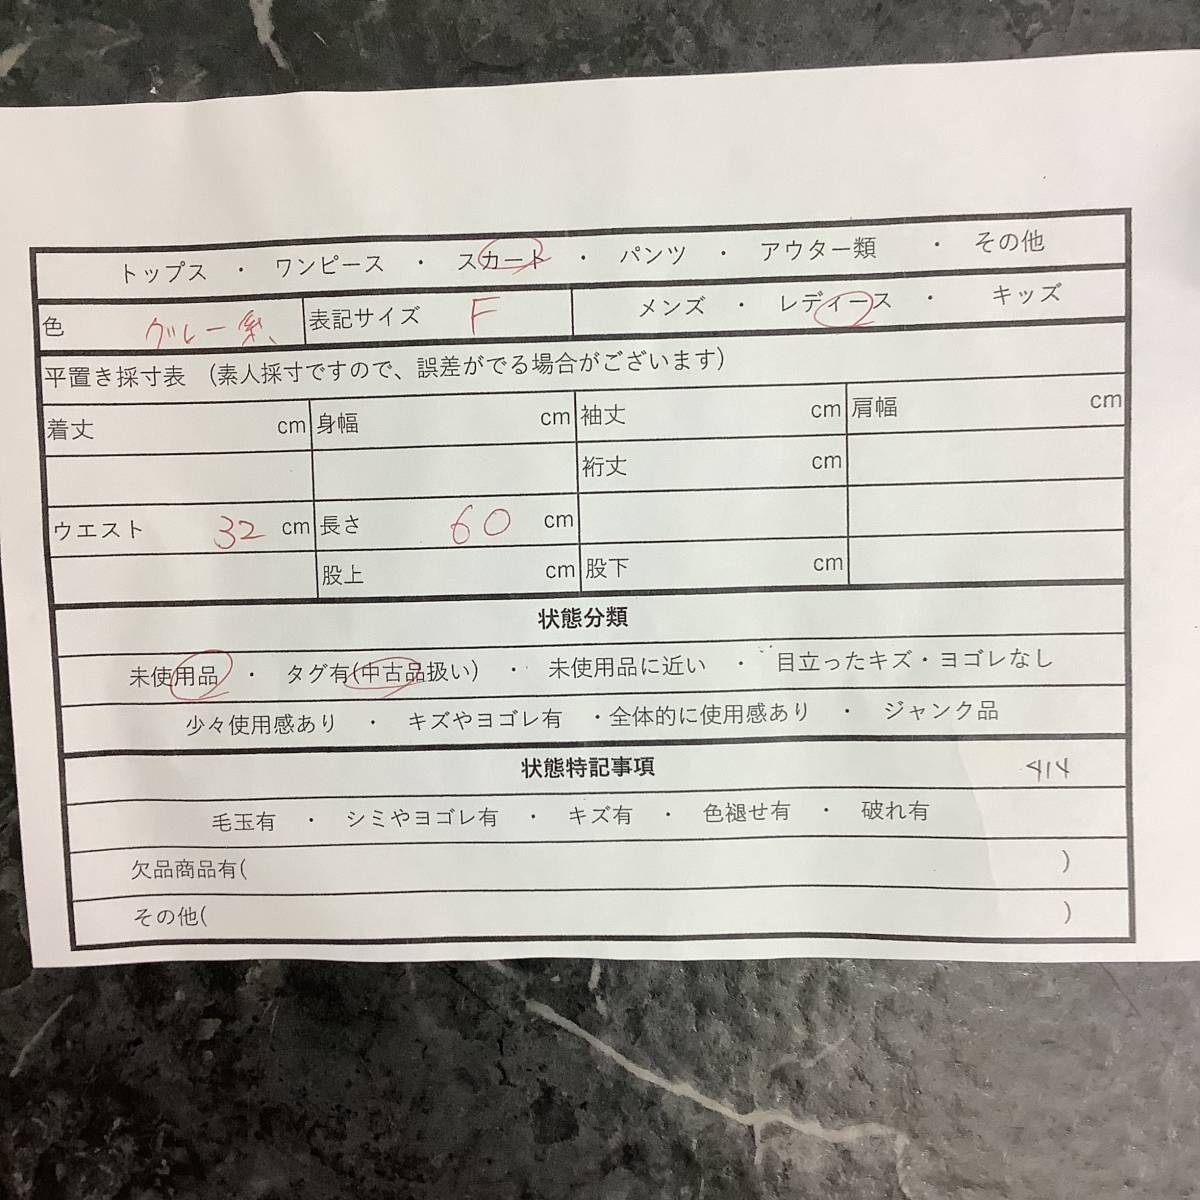 トップス ・ ワンピース ・ スカート ・ パンツ ・ アウター類 ・ その他
色 グレー系、 表記サイズ F メンズ ・ レディース ・ キッズ
平置き採寸表 (素人採寸ですので、誤差がでる場合がございます)
着丈 cm 身幅 cm 袖丈 cm 肩幅 cm
裄丈 cm
ウエスト 32 cm 長さ 60 cm
股上 cm 股下 cm
状態分類
未使用品 ・ タグ有(中古品扱い) ・ 未使用品に近い ・ 目立ったキズ・ヨゴレなし
少々使用感あり ・ キズやヨゴレ有 ・全体的に使用感あり ・ ジャンク品
状態特記事項 414
毛玉有 ・ シミやヨゴレ有 ・ キズ有 ・ 色褪せ有 ・ 破れ有
欠品商品有( )
その他( )